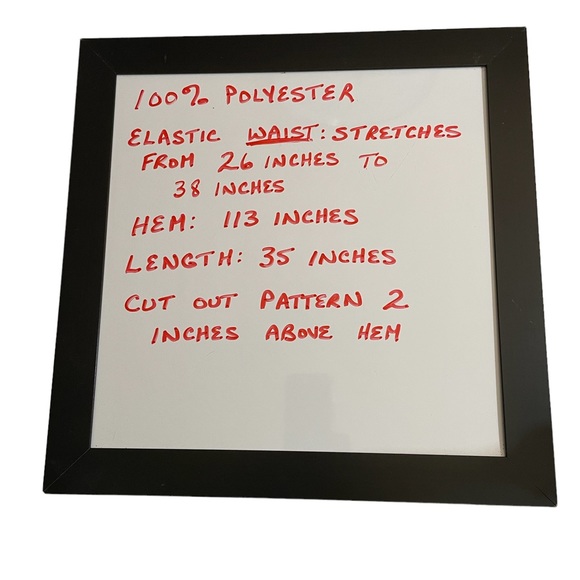 100% POLYESTER
ELASTIC WAIST: STRETCHES
FROM 26 INCHES TO
38 INCHES
HEM: 113 INCHES
LENGTH: 35 INCHES
CUT OUT PATTERN 2
INCHES ABOVE HEM